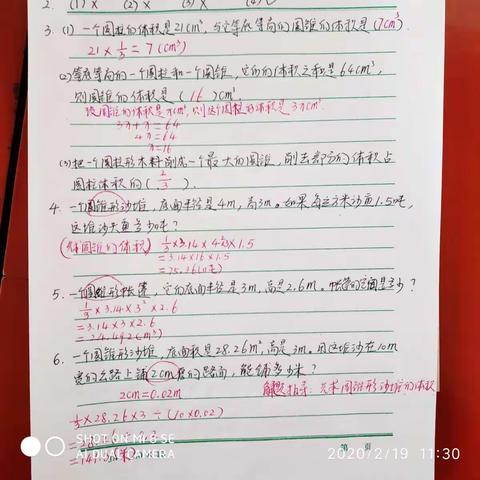 2. (1) × (2) × (3) × (4)
3. (1) 一个圆柱的体积是21cm³, 与它等底等高的圆锥的体积是(7cm³)
21×1/3=7(cm³)
(2)等底等高的一个圆柱和一个圆锥, 它们的体积之和是64cm³,
则圆锥的体积是(16)cm³.
设圆锥的体积是xcm³, 则这个圆柱的体积是3xcm³
3x+x=64
4x=64
x=16
(3)把一个圆柱形木料削成一个最大的圆锥, 削去部分的体积占
圆柱体积的(2/3).
4. 一个圆锥形沙堆, 底面半径是4m, 高3m。如果每立方米沙重1.5吨,
这堆沙共重多少吨?
圆锥的体积) 1/3×3.14×4²×3×1.5
=3.14×16×1.5
=75.36(吨)
5. 一个圆锥形帐篷, 它的底面半径是3m, 高是2.6m。帐篷的空间是多少?
1/3×3.14×3²×2.6
=3.14×3×2.6
=24.492(m³)
6. 一个圆锥形沙堆, 底面积是28.26m², 高是3m。用这堆沙在10m
宽的公路上铺2cm厚的路面, 能铺多少米?
2cm=0.02m 解题指导: 先求圆锥形沙堆的体积
1/3×28.26×3÷(10×0.02)
=28.26
=141.3(米)
SHOT ON MI 8 SE
AI DUAL CAMERA
第 页
2020/2/19 11:30